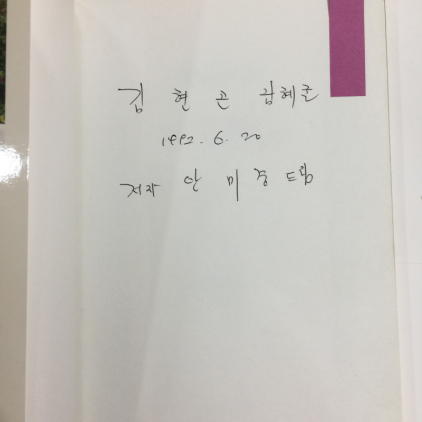 김 현 곤 김혜군
1992. 6. 20
저자 안 미 중 드림